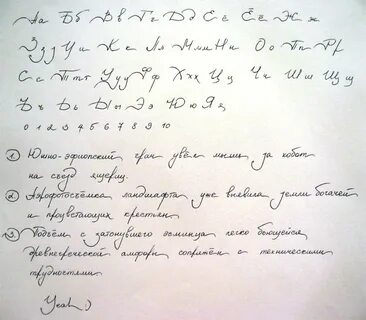 Аа Бб Вв Гг Дд Ее Ёё Жж
Ззз Ии Кк Лл Мм Нн Оо Пп Рр
Сс Ттт Ууу Фф Ххх Цц Чч Шш Щщ
Ъъ Ьь Ыы Ээ Юю Яя
0 1 2 3 4 5 6 7 8 9 10
① Южно-эфиопский грач увёл мышь за хобот
на съезд ящериц.
② Аэрофотосъёмка ландшафта уже выявила земли богачей
и процветающих крестьян
③ Подъём с затонувшего эсминца легко бьющейся
древнегреческой амфоры сопряжён с техническими
трудностями
Yeah :)